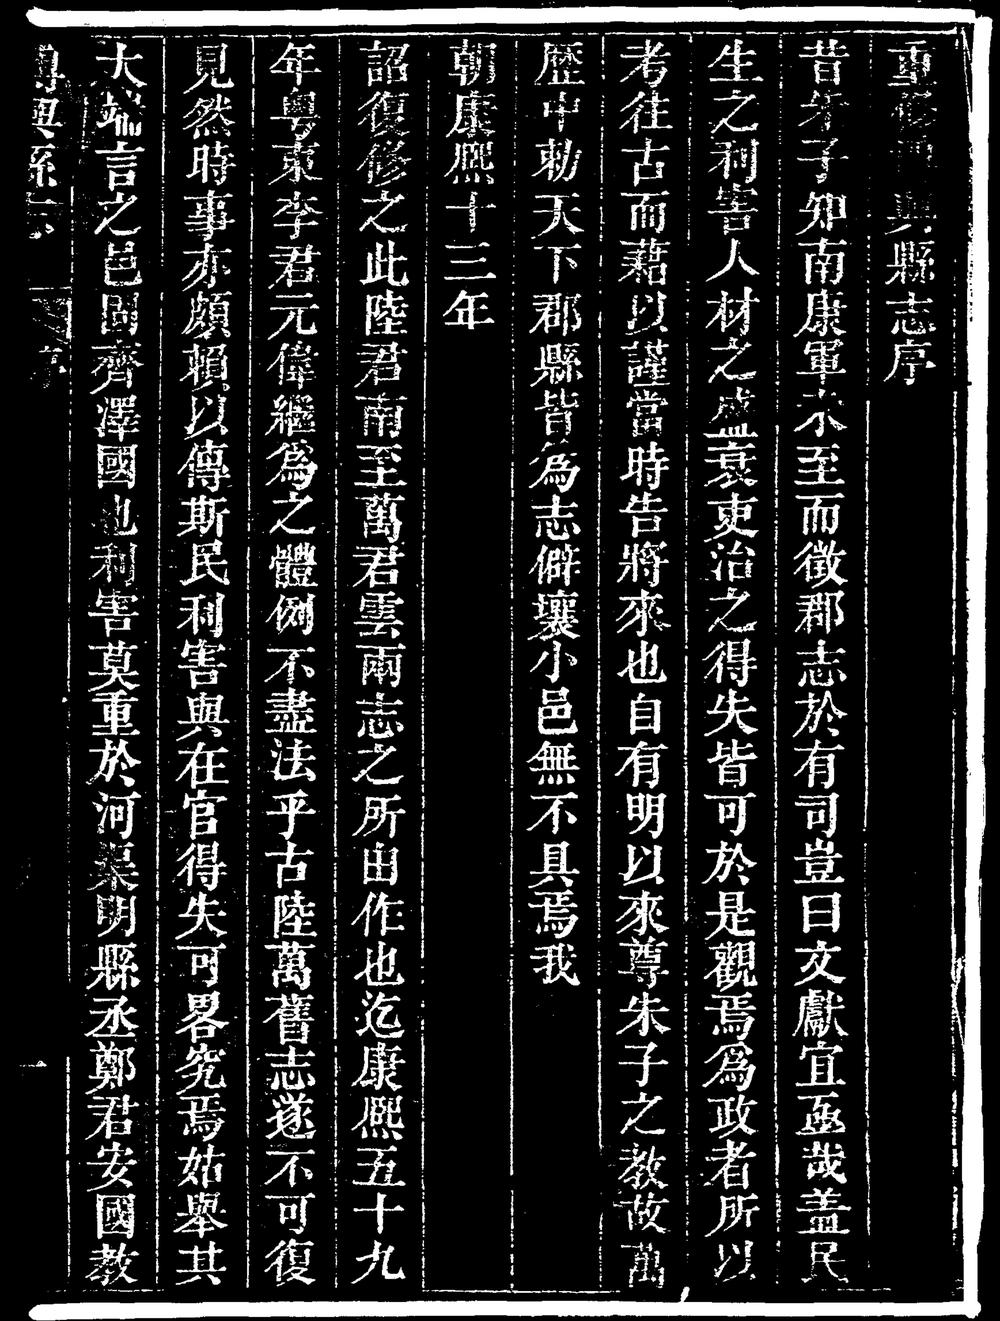 重修博興縣志序
昔朱子知南康軍未至而徵郡志於有司豈曰文獻宜亟哉盖民
生之利害人材之盛衰吏治之得失皆可於是觀焉為政者所以
考往古而藉以謹當時告將來也自有明以來尊朱子之教故萬
歷中勅天下郡縣皆為志僻壤小邑無不具焉我
朝康熙十三年
詔復修之此陸君南至萬君雲兩志之所由作也迄康熙五十九
年粵東李君元偉繼為之體例不盡法乎古陸萬舊志遂不可復
見然時事亦頗賴以傳斯民利害與在官得失可畧究焉姑舉其
大端言之邑固齊澤國也利害莫重於河渠明縣丞鄭君安國教
博興縣志 序 一